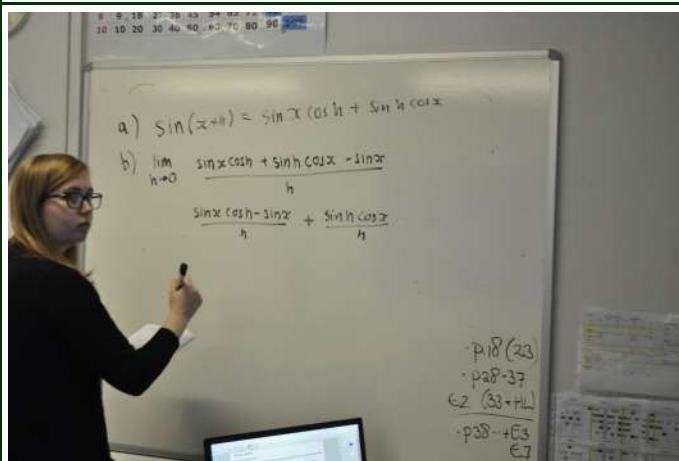 9 9 18 27 36 45 54 63 72
10 10 20 30 40 50 60 70 80 90
a) sin(x+h) = sin x cosh + sinh cosx
b) lim h→0 sinx cosh + sinh cosx - sinx
h
sinx cosh - sinx + sinh cosx
h h
·p.18 (23)
·p28-37
E2 (33+HL)
·p38-·+E3
E7